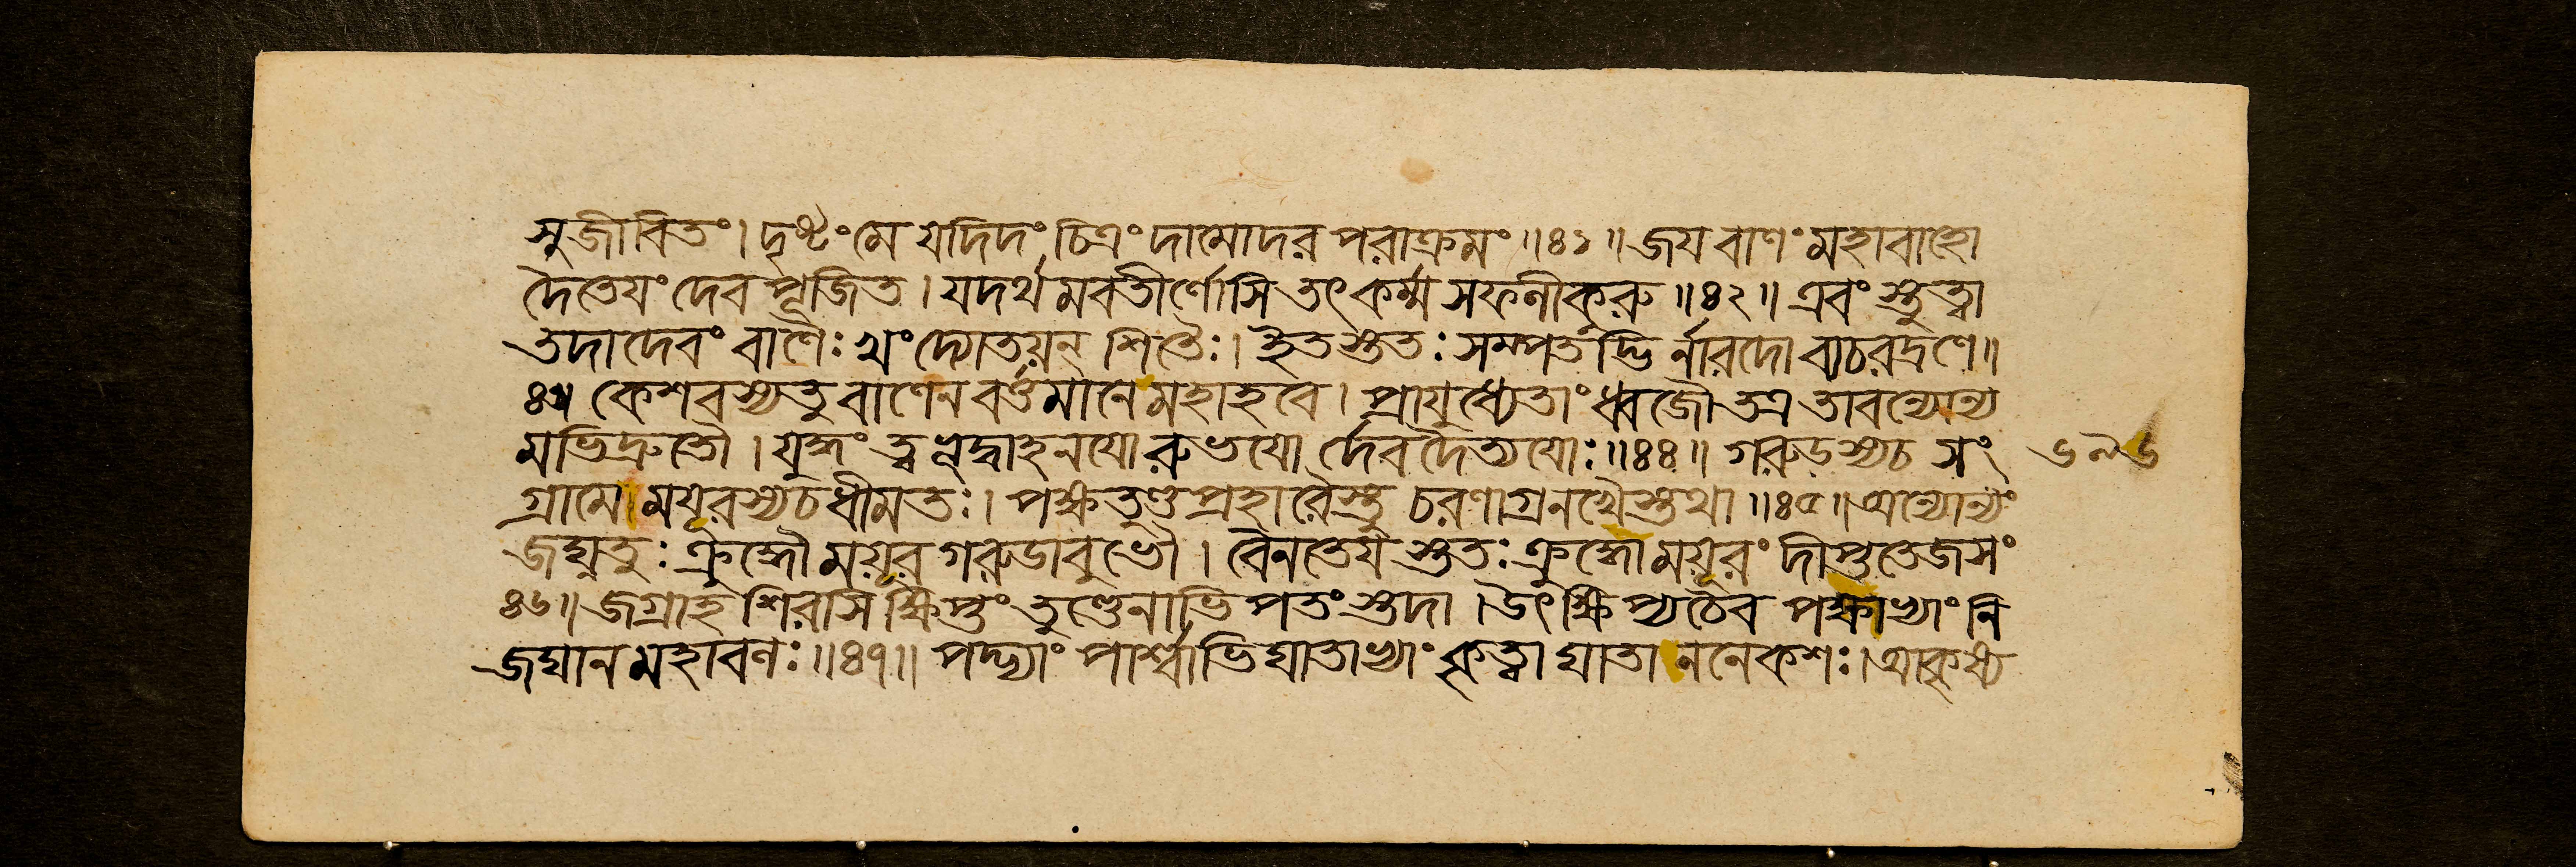 সুজীবিতং। দৃষ্টং মে যদিদং চিত্রং দামোদর পরাক্রমং॥৪১॥ জয বাণং মহাবাহো
দৈতেযং দেব পূজিত। যদর্থ মবতীর্ণোসি তৎ কর্ম্ম সফলীকুরু॥৪২॥ এবং স্তুত্বা
তদা দেবং বাণৈঃ খং দ্যোতয়ন্ শিতৈঃ। ইতস্ততঃ সম্পতদ্ভি র্নারদো ব্যচরদ্রণে॥
৪৩॥ কেশবস্য তু বাণেন বর্ত্তমানে মহাহবে। প্রাযুধ্যেতাং ধ্বজৌ তত্র তাবন্যোন্য
মভিদ্রুতৌ। যুদ্ধং ত্বভূদ্বাহনযো রুভযো র্দেব দৈত্যযোঃ॥৪৪॥ গরুড়স্য চ সং
গ্রামে ময়ূরস্য চ ধীমতঃ। পক্ষতুণ্ড প্রহারৈস্তু চরণাগ্রনখৈস্তথা॥৪৫॥ অন্যোন্যং
জঘ্নতুঃ ক্রুদ্ধৌ ময়ূর গরুডাবুভৌ। বৈনতেয স্ততঃ ক্রুদ্ধো ময়ূরং দীপ্ততেজসং
৪৬॥ জগ্রাহ শিরসি ক্ষিপ্তং তুণ্ডেনাভি পতংস্তদা। উৎক্ষিপ্য চৈব পক্ষাভ্যাং নি
জঘান মহাবলঃ॥৪৭॥ পদ্ভ্যাং পার্শ্বাভিঘাতাভ্যাং কৃত্বা ঘাতা ননেকশঃ। আকৃষ্য